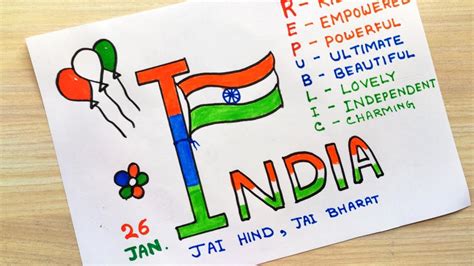 R -
E - EMPOWERED
P - POWERFUL
U - ULTIMATE
B - BEAUTIFUL
L - LOVELY
I - INDEPENDENT
C - CHARMING
INDIA
26
JAN.
JAI HIND, JAI BHARAT